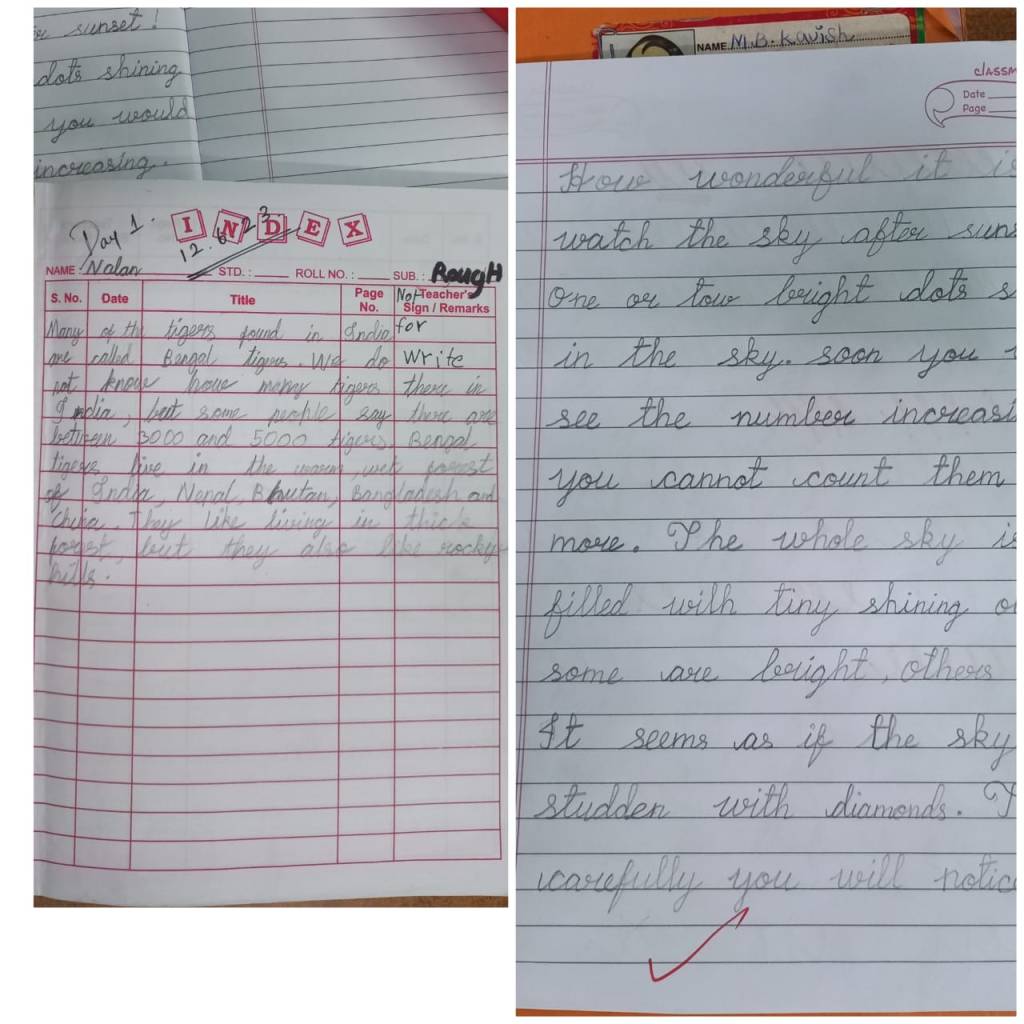 sunset!
dots shining
you would
increasing.
Day 1.
INDEX
12.6.23
NAME: Nalan STD.: ROLL NO.: SUB.: RougH
S. No. Date Title Page No. Teacher's Sign / Remarks
Not
for
write
Many of the tigers found in India
are called Bengal tigers. We do
not know how many tigers there in
India, but some people say there are
between 3000 and 5000 tigers. Bengal
tigers live in the warm, wet forest
of India, Nepal, Bhutan, Bangladesh and
China. They like living in thick
forest, but they also like rocky
hills.
NAME M.B. Kavish
classm
Date
Page
How wonderful it is
watch the sky after suns
One or tow bright dots s
in the sky. soon you
see the number increasi
you cannot count them
more. The whole sky is
filled with tiny shining
some are bright, others
It seems as if the sky
studden with diamonds.
carefully you will notic